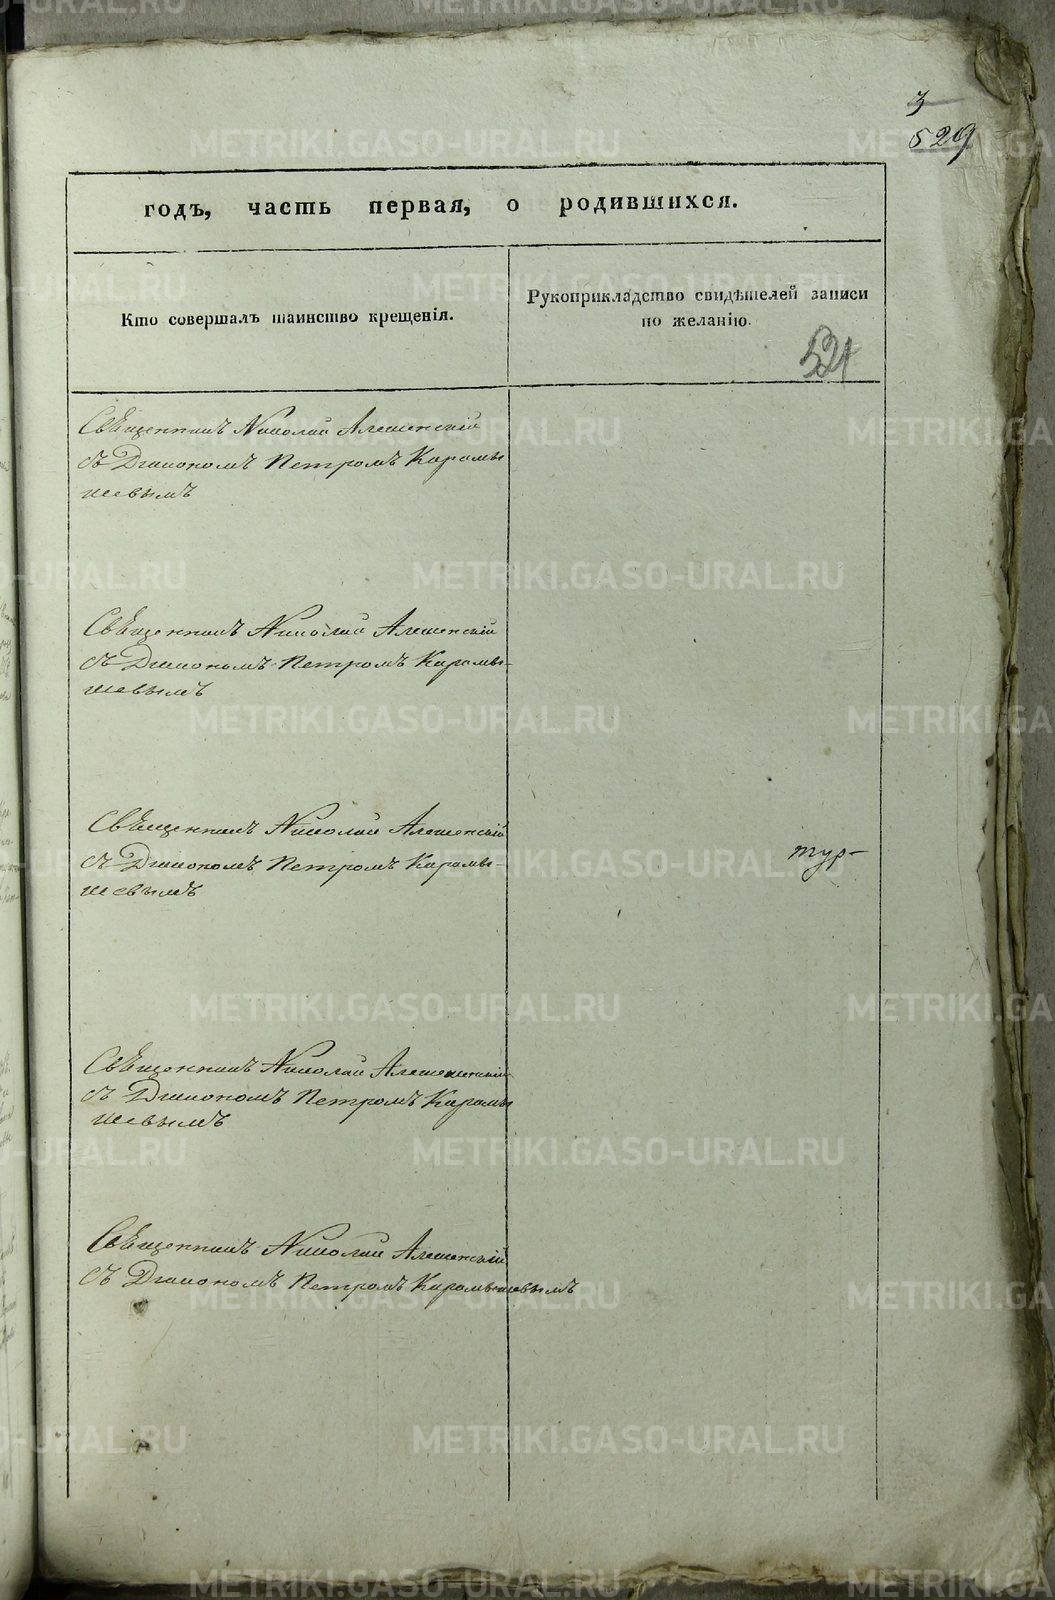 3
529
годъ, часть первая, о родившихся.
Кто совершалъ таинство крещенія.
Рукоприкладство свидѣтелей записи
по желанію.
521
Священникъ Николай Алешенскій
съ Діакономъ Петромъ Карамы
шевымъ
Священникъ Николай Алешенскій
съ Діакономъ Петромъ Карамы-
шевымъ
Священникъ Николай Алешенскій
съ Діакономъ Петромъ Карамы-
шевымъ
тур-
Священникъ Николай Алешенскій
съ Діакономъ Петромъ Карамы
шевымъ
Священникъ Николай Алешенскій
съ Діакономъ Петромъ Карамышевымъ
METRIKI.GASO-URAL.RU